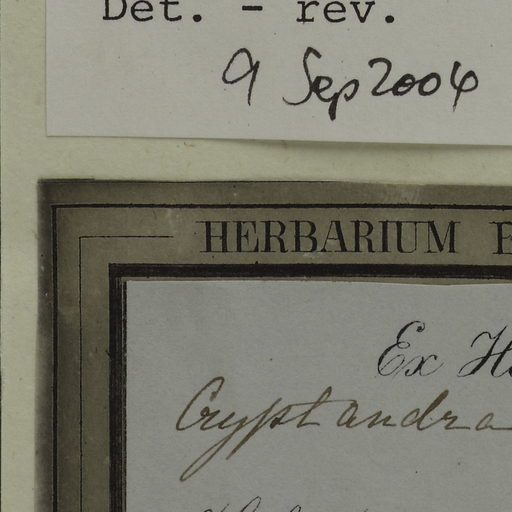 Det. - rev.
9 Sep 2004
HERBARIUM
Ex
Cryptandra